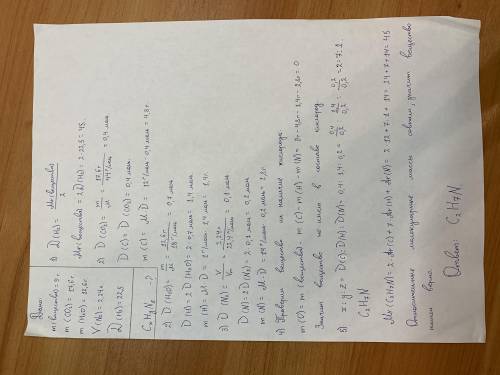 Дано:
m(вещества) = 9г.
m(CO₂) = 17,6г.
m(H₂O) = 12,6г
V(N₂) = 2,24л
D(H₂) = 22,5
CₓHᵧN_z - ?
1) D(H₂) = Mr(вещества)/2
Mr(вещества) = 2D(H₂) = 2·22,5 = 45.
2) D(CO₂) = m/M = 17,6г/44г/моль = 0,4 моль
D(C) = D(CO₂) = 0,4 моль
m(C) = M·D = 12г/моль·0,4 моль = 4,8г.
2) D(H₂O) = m/M = 12,6г/18г/моль = 0,7 моль
D(H) = 2D(H₂O) = 2·0,7 моль = 1,4 моль
m(H) = M·D = 1г/моль·1,4 моль = 1,4г.
3) D(N₂) = V/Vm = 2,24л/22,4л/моль = 0,1 моль
D(N) = 2D(N₂) = 2·0,1 моль = 0,2 моль
m(N) = M·D = 14г/моль·0,2 моль = 2,8г
4) Проверим вещество на наличие кислорода
m(O) = m(вещества) - m(C) - m(H) - m(N) = 9г - 4,8г - 1,4г - 2,8г = 0
Значит вещество не имеет в составе кислород.
5) x:y:z = D(C):D(H):D(N) = 0,4:1,4:0,2 = 0,4/0,2 : 1,4/0,2 : 0,2/0,2 = 2:7:1.
C₂H₇N
Mr(C₂H₇N) = 2·Ar(C) + 7·Ar(H) + Ar(N) = 2·12 + 7·1 + 14 = 24 + 7 + 14 = 45
Относительные молекулярные массы совпали, значит вещество
нашли верно.
Ответ: C₂H₇N